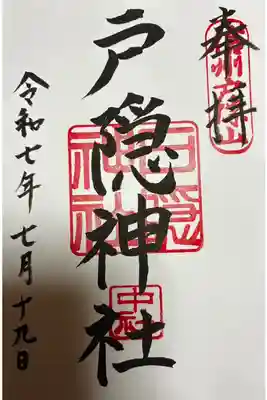 奉拝
戸隠神社
戸隠神社
中社
令和七年七月十九日